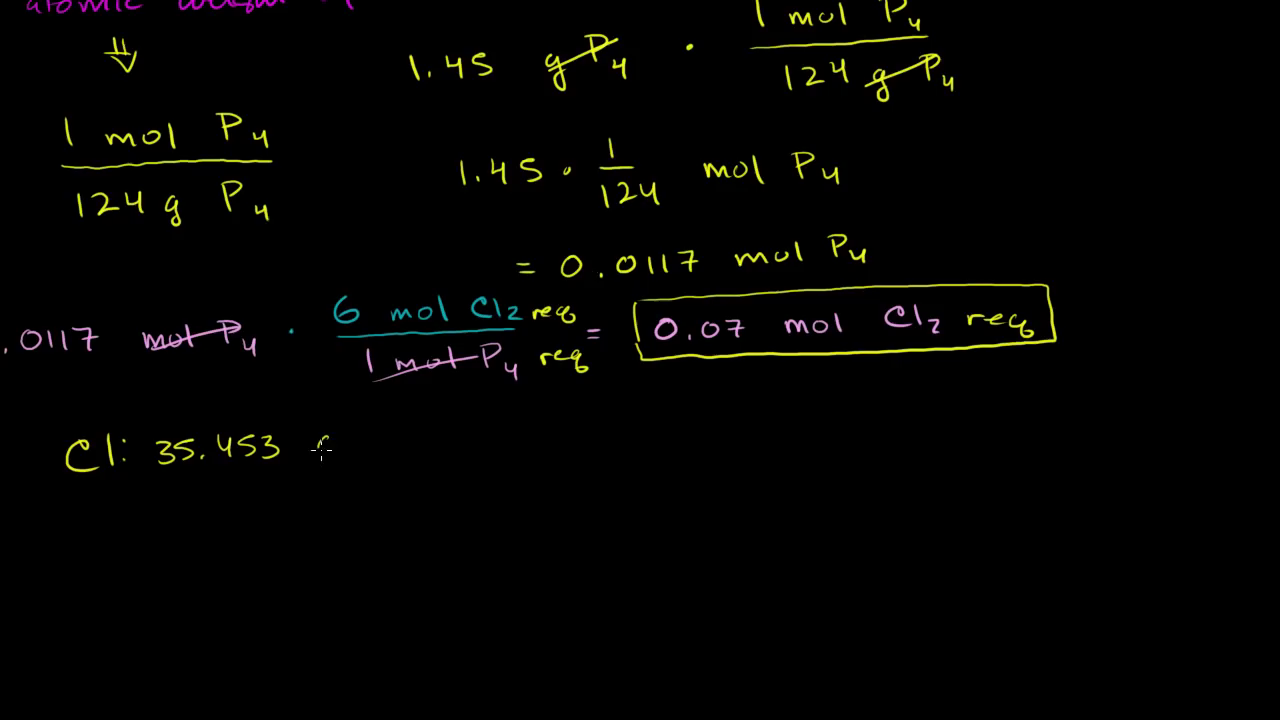 atomic weight
⇓
1.45 g P4 · 1 mol P4 / 124 g P4
1 mol P4 / 124 g P4
1.45 · 1/124 mol P4
= 0.0117 mol P4
.0117 mol P4 · 6 mol Cl2 req / 1 mol P4 req = 0.07 mol Cl2 req
Cl: 35.453